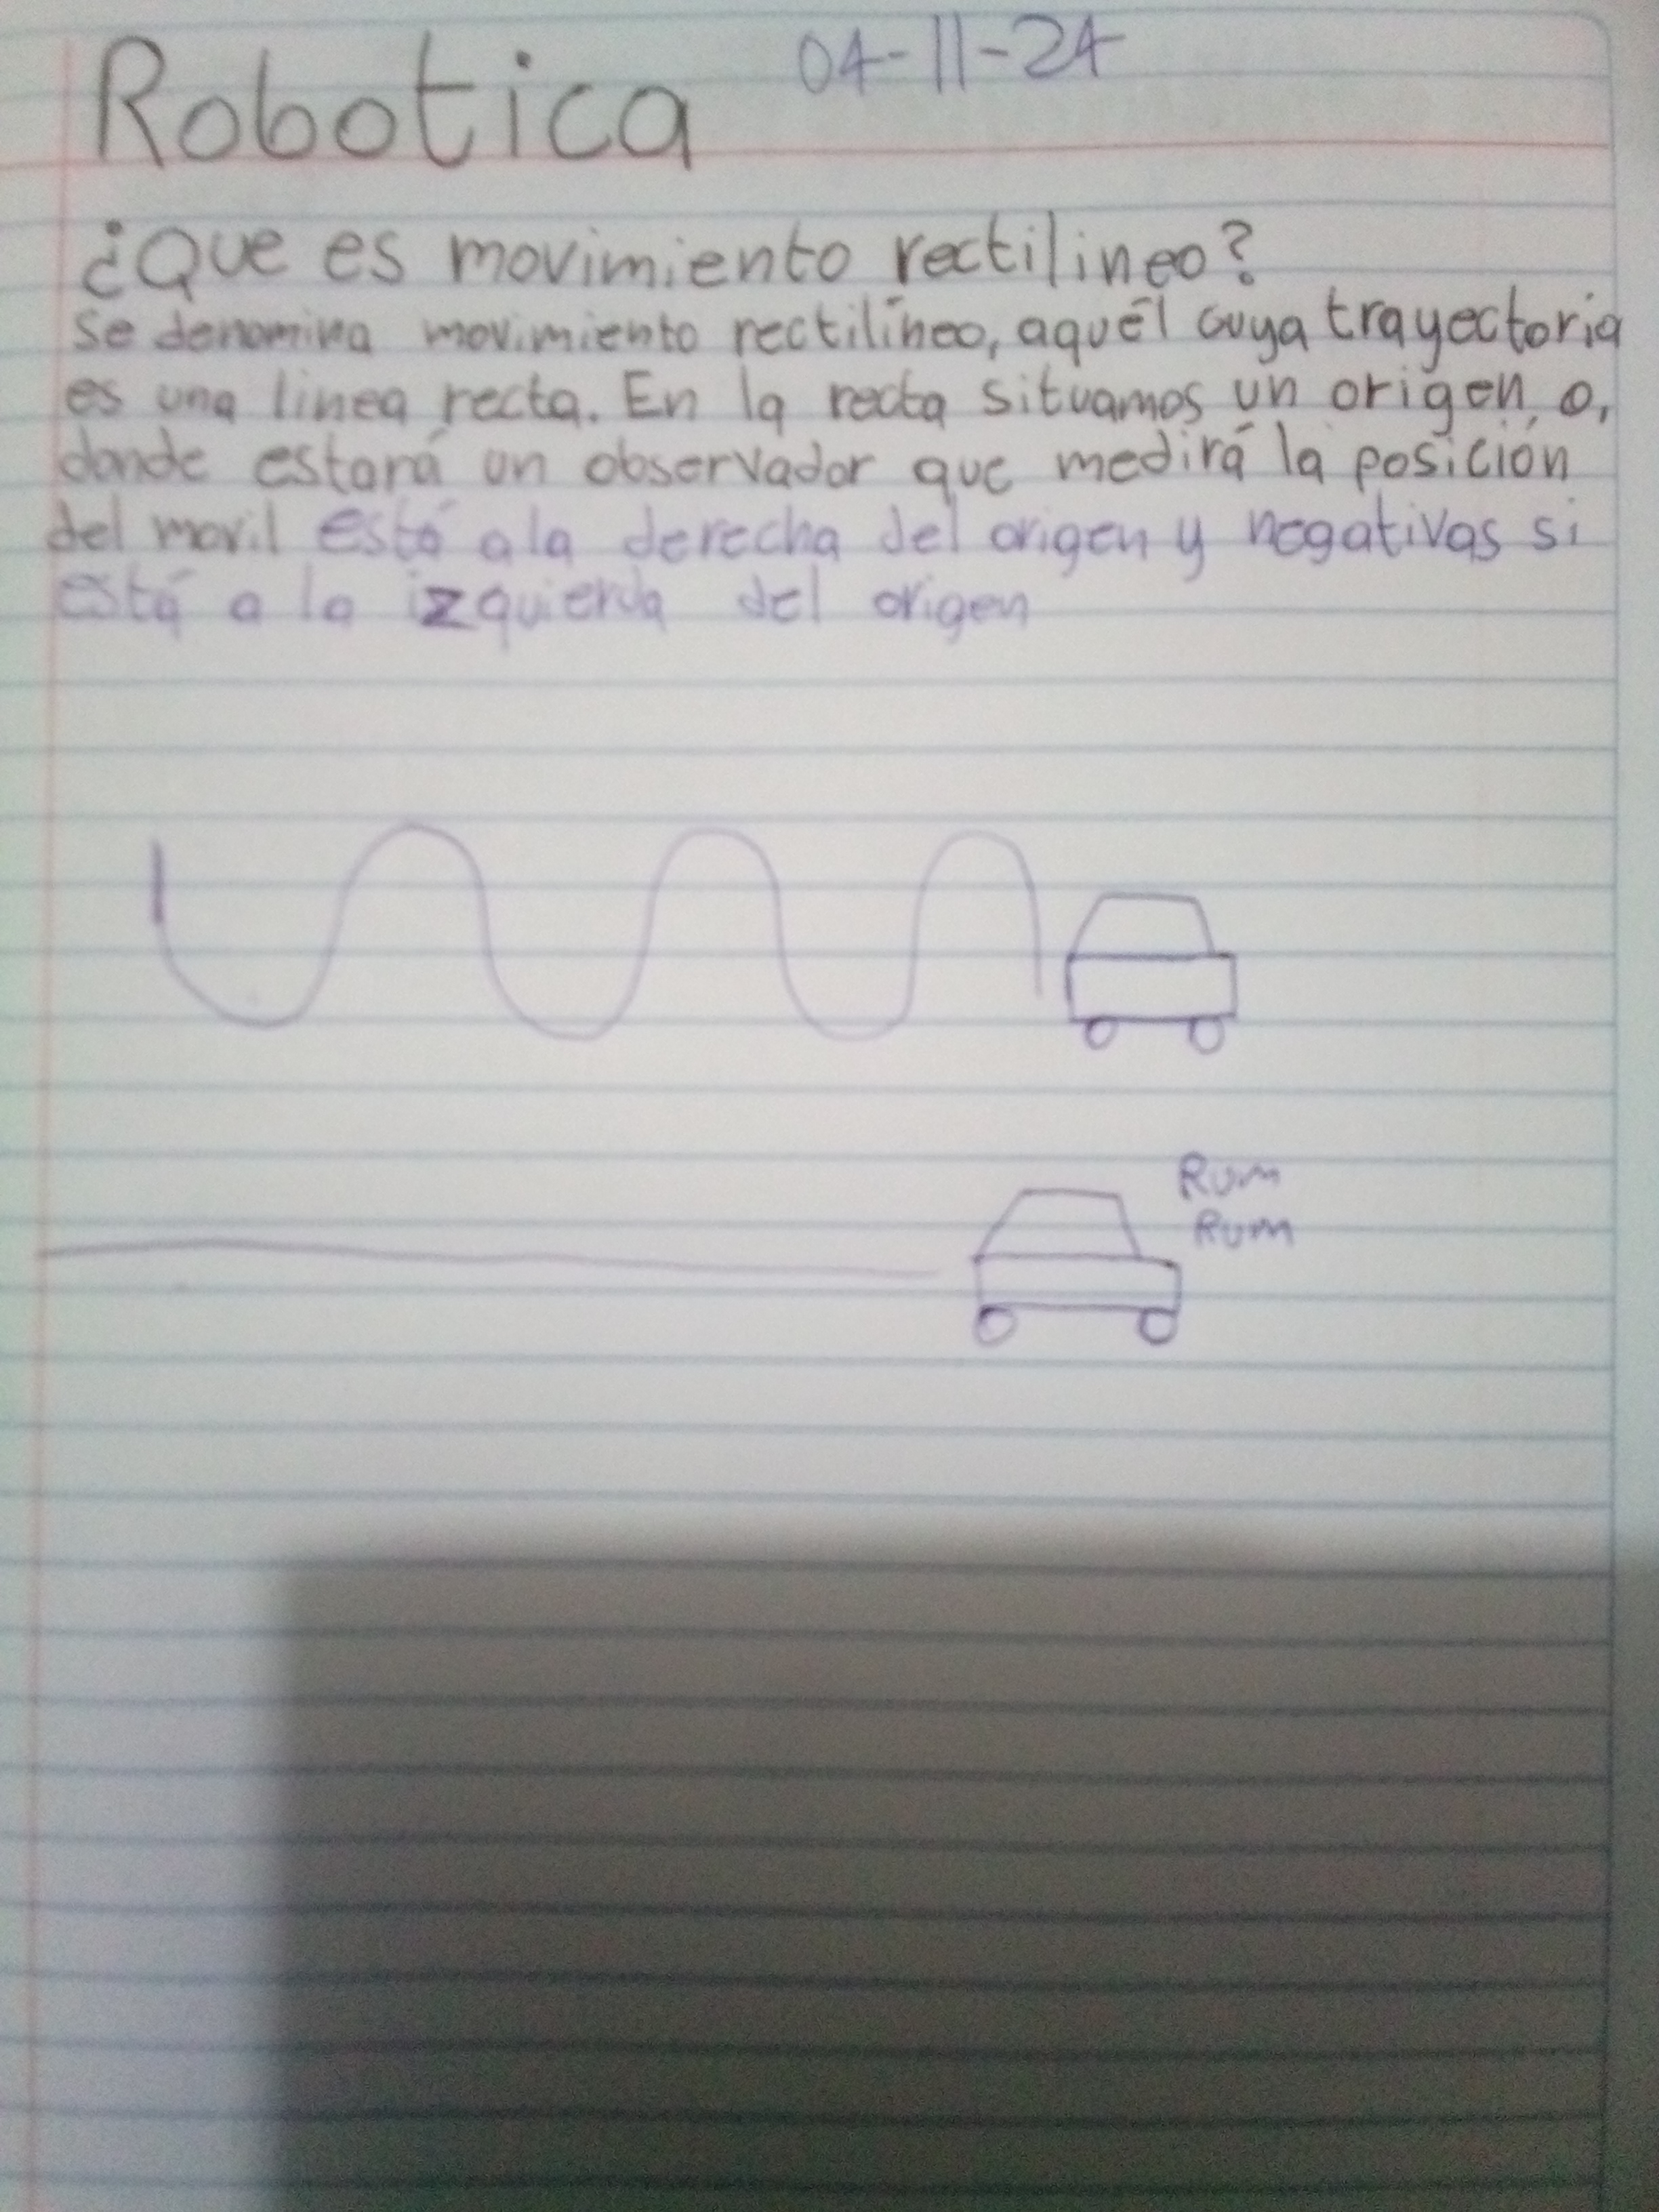 Robotica 04-11-24
¿Que es movimiento rectilineo?
se denomina movimiento rectilíneo, aquél cuya trayectoria
es una linea recta. En la recta situamos un origen, o,
donde estará un observador que medirá la posición
del movil está a la derecha del origen y negativas si
está a la izquierda del origen
Rum
Rum